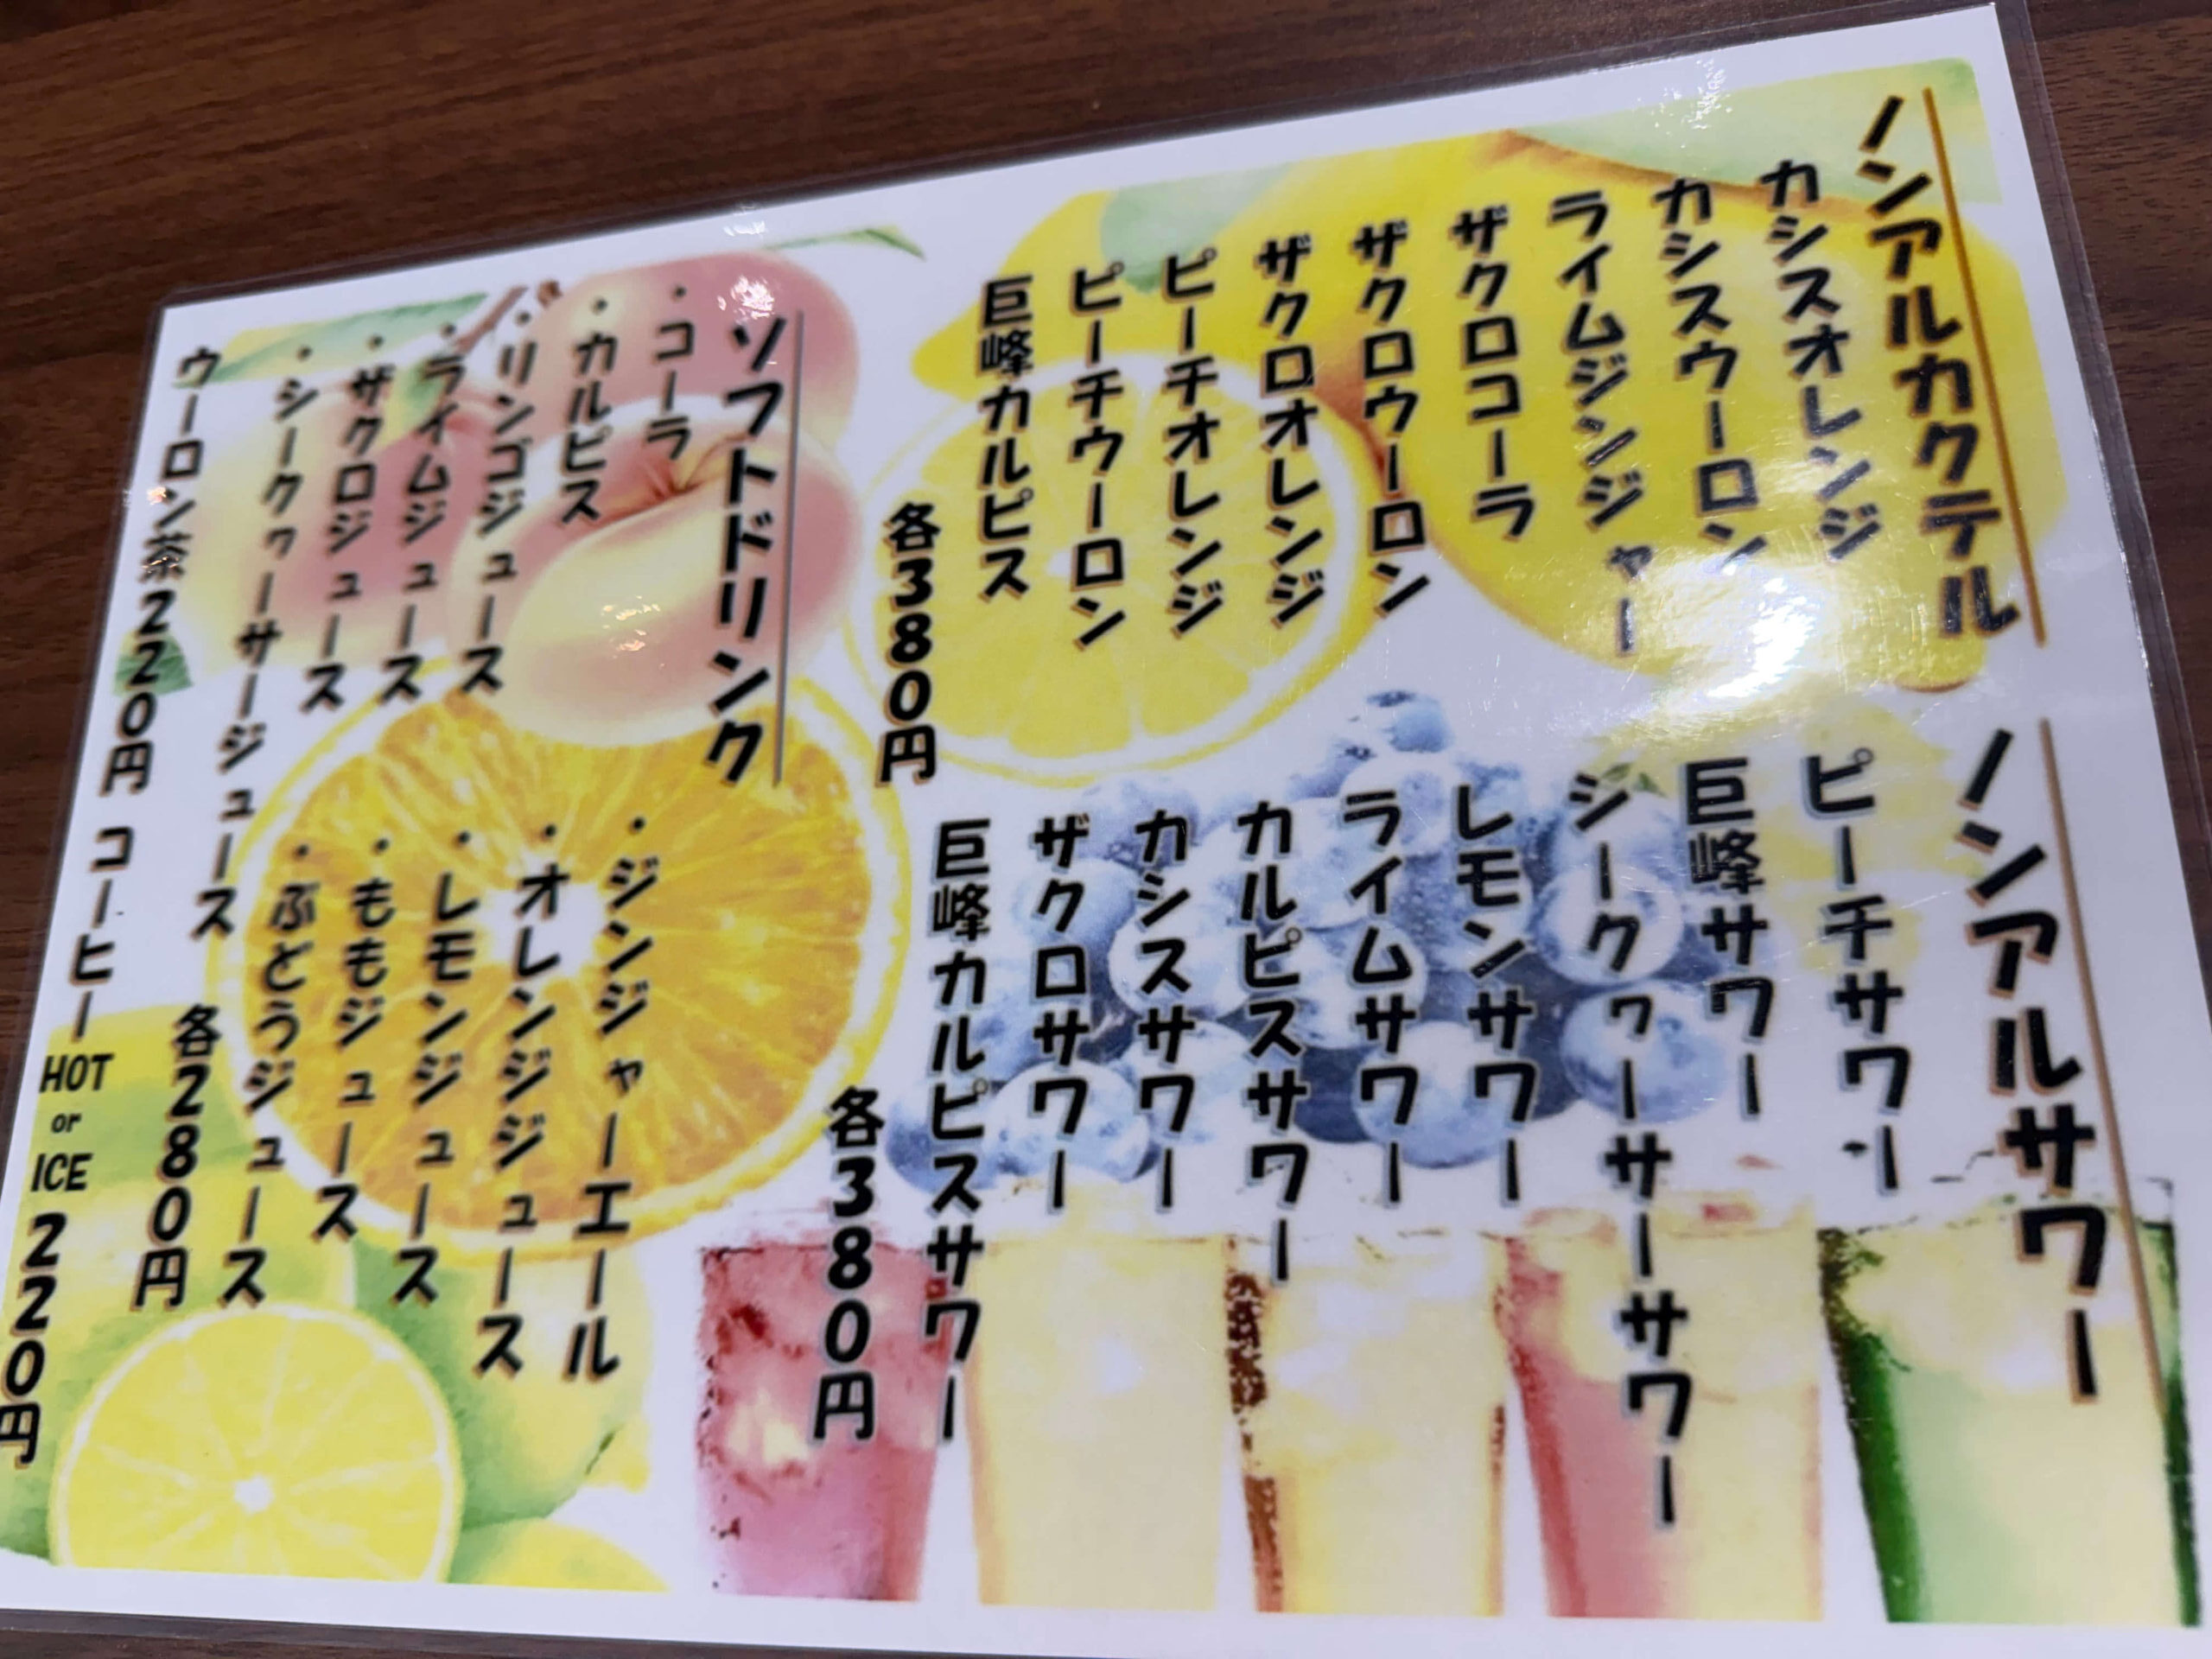 ノンアルカクテル
カシスオレンジ
カシスウーロン
ライムジンジャー
ザクロコーラ
ザクロウーロン
ザクロオレンジ
ピーチオレンジ
ピーチウーロン
巨峰カルピス
各380円
ノンアルサワー
ピーチサワー
巨峰サワー
シークヮーサーサワー
レモンサワー
ライムサワー
カルピスサワー
カシスサワー
ザクロサワー
巨峰カルピスサワー
各380円
ソフトドリンク
・コーラ
・カルピス
・リンゴジュース
・ライムジュース
・ザクロジュース
・シークヮーサージュース
・ジンジャーエール
・オレンジジュース
・レモンジュース
・ももジュース
・ぶどうジュース
各280円
ウーロン茶220円 コーヒー HOT or ICE 220円